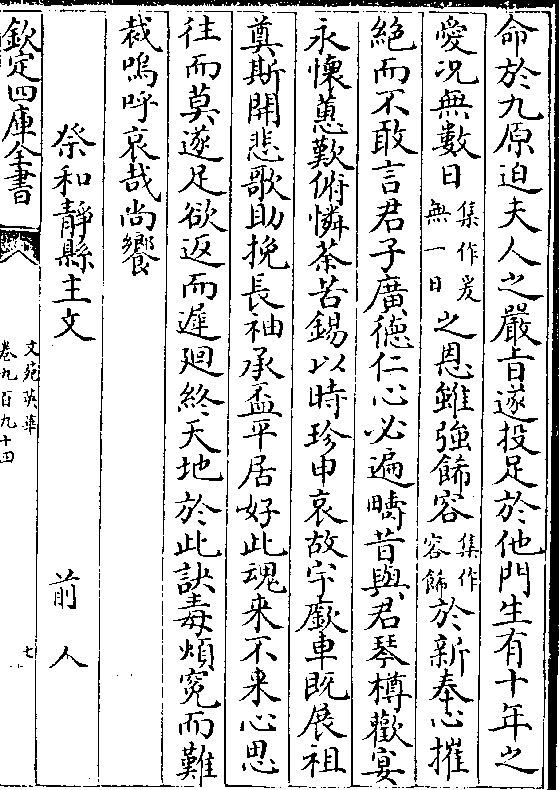 命於九原迫夫人之嚴旨遂投足於他門生有十年之
愛况無數日集作爰無一日之恩雖強飾容集作容飾於新奉心摧
絶而不敢言君子廣徳仁心必遍疇昔與君琴樽歡宴
永懷蕙歎俯憐荼苦錫以時珍申哀故宇歠車既展祖
奠斯開悲歌助挽長袖承盃平居好此魂來不來心思
往而莫遂足欲返而遲廻終天地於此訣毒煩寃而難
裁嗚呼哀哉尚饗
祭和靜縣主文 前人
欽定四庫全書
文苑英華
卷九百九十四
七